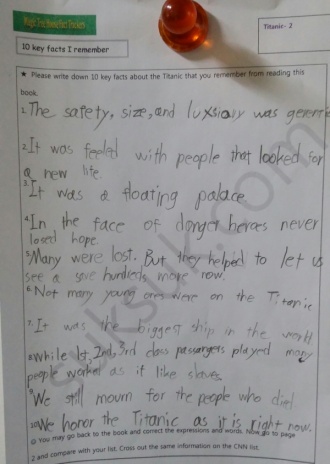 Magic Tree House Fact Trackers
Titanic- 2
10 key facts I remember
★ Please write down 10 key facts about the Titanic that you remember from reading this
book.
1. The safety, size, and luxsiory was
2. It was feeled with people that looked for
a new life
3. It was a floating palace
4. In the face of danger heroes never
losed hope.
5. Many were lost. But they helped to let us
see a save hundreds more now.
6. Not many young ones were on the Titanic
7. It was the biggest ship in the world
8. While 1st, 2nd, 3rd class passangers played many
people worked as it like slaves.
9. We still mourn for the people who died
10. We honor the Titanic as it is right now.
☺ You may go back to the book and correct the expressions and words. Now, go to page
2 and compare with your list. Cross out the same information on the CNN list.
suksuk.com